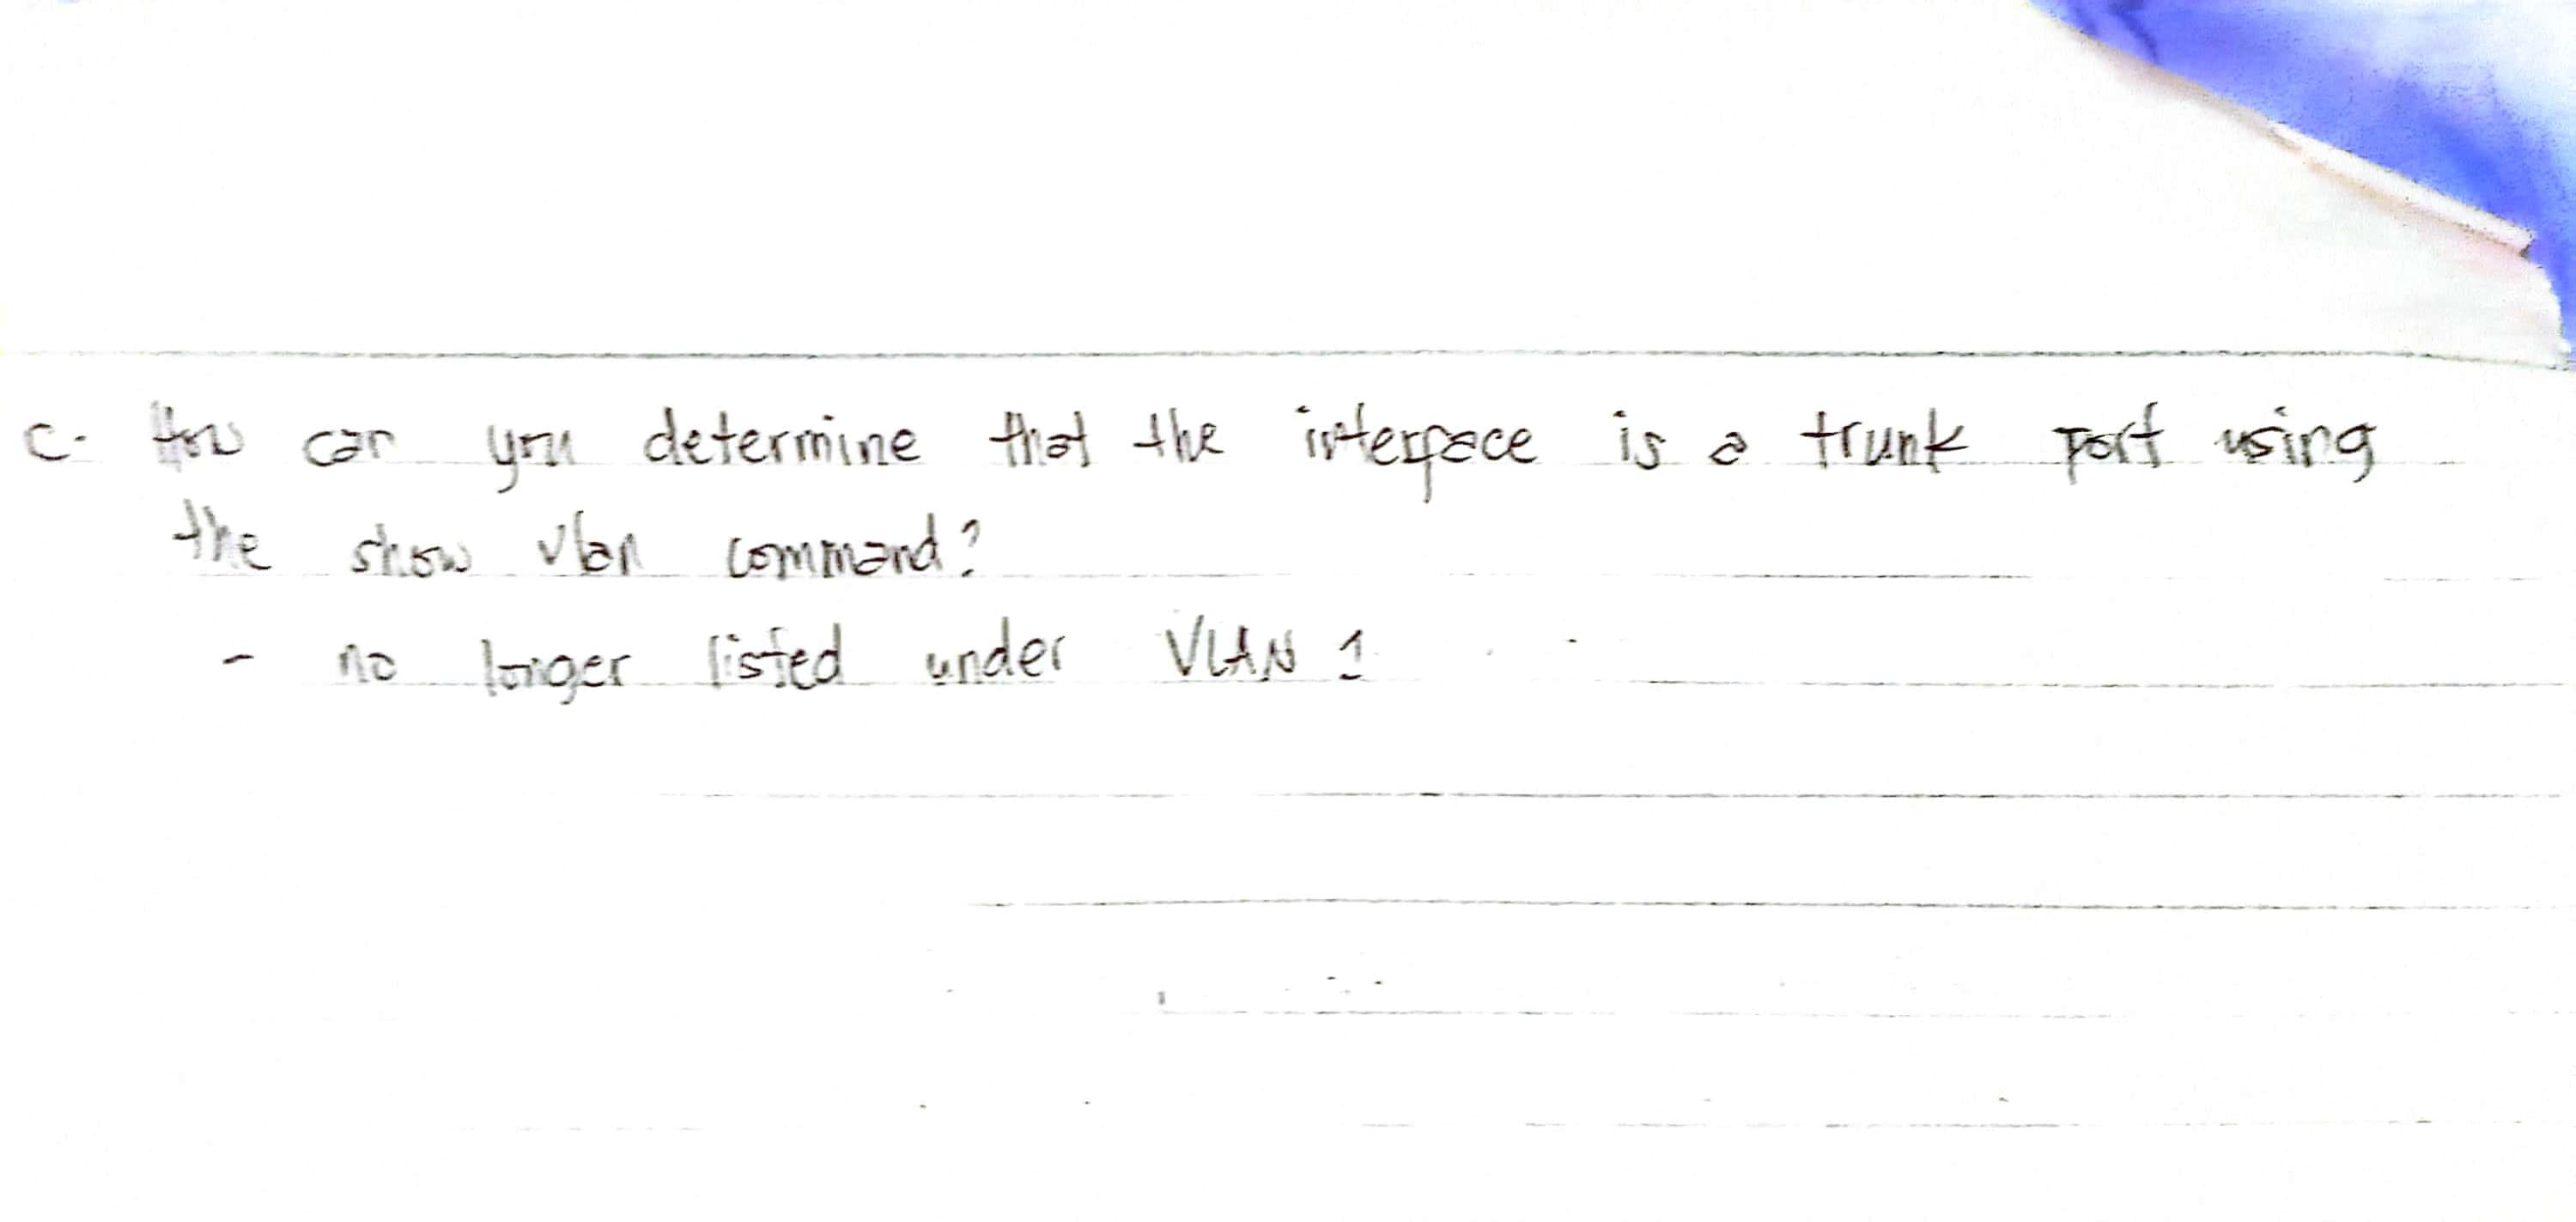 c. How can you determine that the interface is a trunk port using
the show vlan command?
- no longer listed under VLAN 1